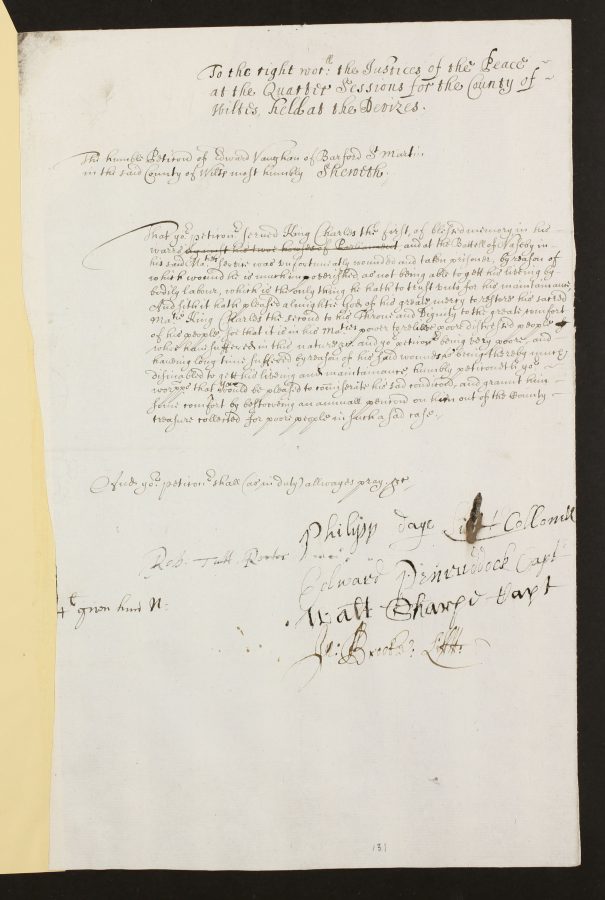 To the right wor:ll the Justices of the Peace
at the Quarter Sessions for the County of
Wiltes, held at the Devizes.
The humble Peticon of Edward Vaughan of Barford St Martin
in the said County of Wilts most humbly Sheweth,
That yor peticonr served King Charles the first, of blessed memory in his
warrs against his two houses of Parliament and at the Battell of Nasby in
his said Maties service was unfortunatly wounded and taken prisoner, by reason of
which wound he is much impoverished as not being able to gett his liveing by
bodily labour, which is the only thing he hath to trust unto for his maintenance,
And sith it hath pleased almightie God of his greate mercy to restore his sacred
Matie King Charles the second to his Throne and Dignity to the greate comfort
of his people for that it is in his Maties power to releive poore distressed people
who have suffered in this nature &c. and yor peticonr being very poore, and
haveing long time suffered by reason of his said wounds as being thereby much
disinabled to gett his liveing and maintenance humbly peticoneth yor
worpps that you would be pleased to comiserate his sad condicon, and graunt him
some comfort by bestoweing an annuall pencon on him out of the County
treasure collected for poore people in such a sad case.
And yor peticonr shall (as in duty) allwayes pray &c
Philipp daye Liut Collonill
Rob. Tutt Rector
Edward Penruddock Capt
Walt Sharpe Capt
given him
Jo: Brocke
131